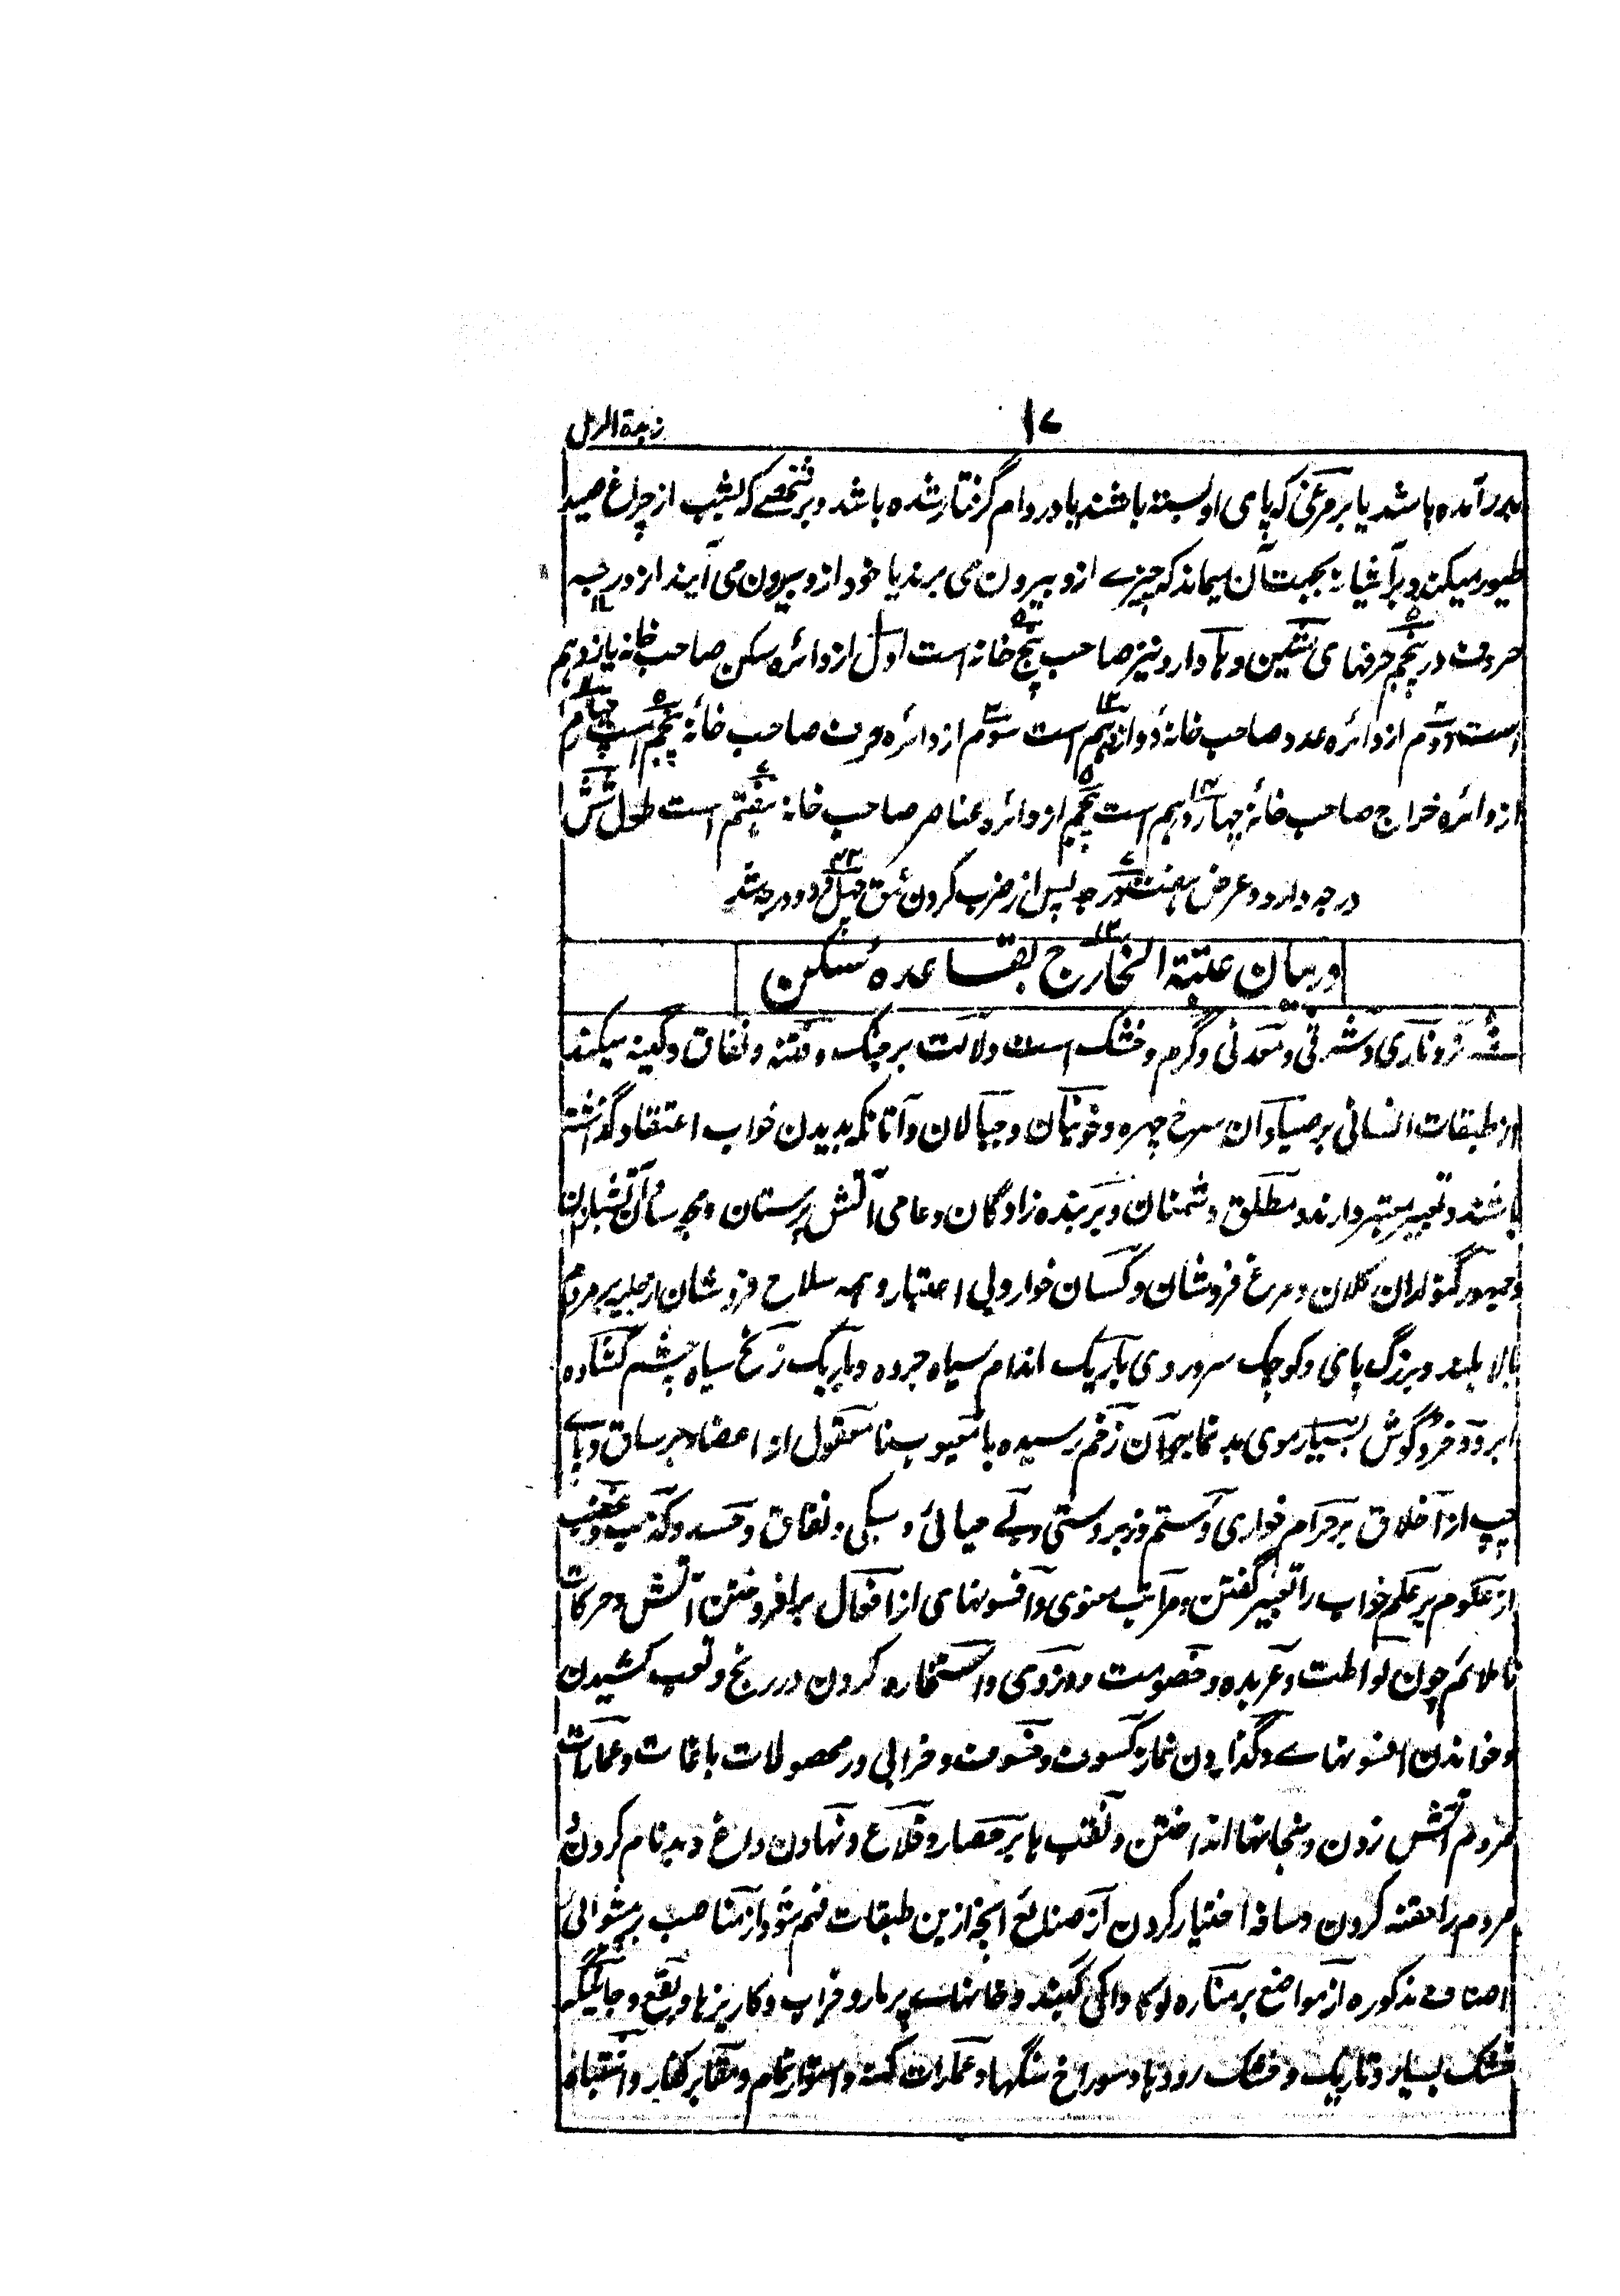 ۱۷
زبدة الرمل
بدر آمده باشد یا بر مرغی که پای او بسته باشند یا در دام گرفتار شده باشد و بر شخصے که بشب از چراغ صید
طیور میکند و بر آشیانه بجهت آن میماند که چیزے ازو بیرون می برند یا خود ازو بیرون می آیند از درجه
حروف در پنجم حرفهای و دارد و نیز صاحب پنج خانه است اول از دائره سکن صاحب خانه یازدهم
است دوم از دائره عدد صاحب خانهٔ دوازدهم است سوم از دائره حرف صاحب خانهٔ پنجم است چهارم
از دائره خراج صاحب خانهٔ چهاردهم است پنجم از دائره عناصر صاحب خانهٔ هفتم است طول شش
درجه دارد و عرض هفت درجه پس از ضرب کردن شق چهل و دو درجه شد
در بیان عتبة الخارج بقاعده سکن
فرد ناری و شرقی و معدنی و گرم و خشک است دلالت بر جنگ و فتنه و نفاق و کینه میکند
از طبقات انسانی بر صیادان سرخ چهره و خونیان و و آنانکه بدیدن خواب اعتقاد گذاشته
باشند و تعبیر معتبر دارند و مطلق دشمنان و بر بنده زادگان و عامی آتش پرستان و آتشبازان
و جمهور کلان و مرغ فروشان و کسان خوار و بی اعتبار و همه سلاح فروشان از حلیه بر مردم
بالا بلند و بزرگ پای و کوچک سر و روی باریک اندام سیاه جرده و باریک زنخ سیاه چشم کشاده
ابرو و فرو گوش بسیار موی بدنما زخم رسیده یا معیوب نامعقول از اعضا بر ساق و پاے
چپ از اخلاق بر حرام خواری و ستم و زبردستی و بے حیائی و سبکی و نفاق و حسد و کذب و غضب
از علوم بر علم خواب را تعبیر گفتن و مراتب معنوی و افسونهای از افعال برافروختن آتش و حرکات
ناملائم چون لواطت و عربده و خصومت و دزدی و استخاره کردن در رنج و تعب کشیدن
و خواندن افسونهاے و گذاردن نماز کسوف و خسوف و خرابی در محصولات باغات و عمارات
مردم آتش زدن و انداختن و نقب ها بر حصار و قلاع و نهادن داغ و بدنام کردن
مردم را فتنه کردن و اختیار کردن از صنائع انچه ازین طبقات فهم شود از مناصب بر پیشوائی
اصناف مذکوره از مواضع بر مناره و گنبد و خانهاے پر مار و خراب و کاریزها و
خشک بسیار و تاریک و خشک رودها و سوراخ سنگها و عمارات کهنه و و مقابر کفار و